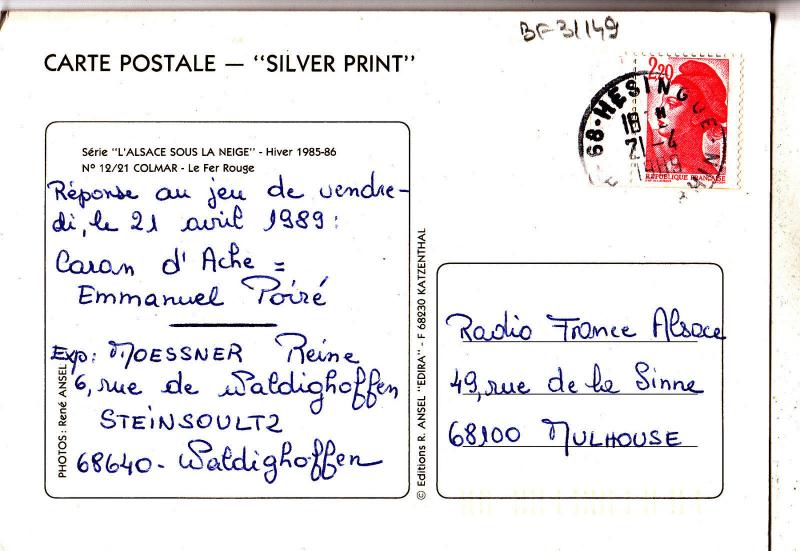 BF 31149
CARTE POSTALE — "SILVER PRINT"
2,20
RÉPUBLIQUE FRANÇAISE
68·HESINGUE
18 H
21-4
1989
Série "L'ALSACE SOUS LA NEIGE" - Hiver 1985-86
N° 12/21 COLMAR - Le Fer Rouge
Réponse au jeu de vendre-
di, le 21 avril 1989 :
Caran d'Ache =
Emmanuel Poiré
Exp: MOESSNER Reine
6, rue de Waldighoffen
STEINSOULTZ
68640 - Waldighoffen
PHOTOS : René ANSEL
© Editions R. ANSEL "EDIRA" - F 68230 KATZENTHAL
Radio France Alsace
49, rue de la Sinne
68100 MULHOUSE